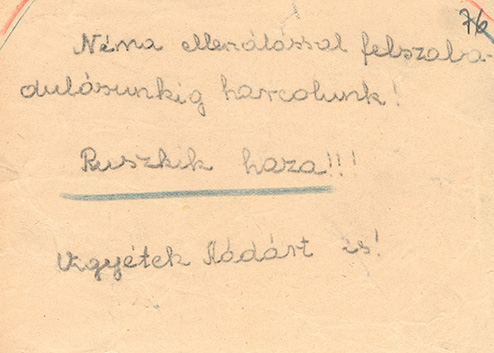 76
Néma ellenálással felszaba-
dulásunkig harcolunk!
Ruszkik haza!!!
Vigyétek Kádárt is!